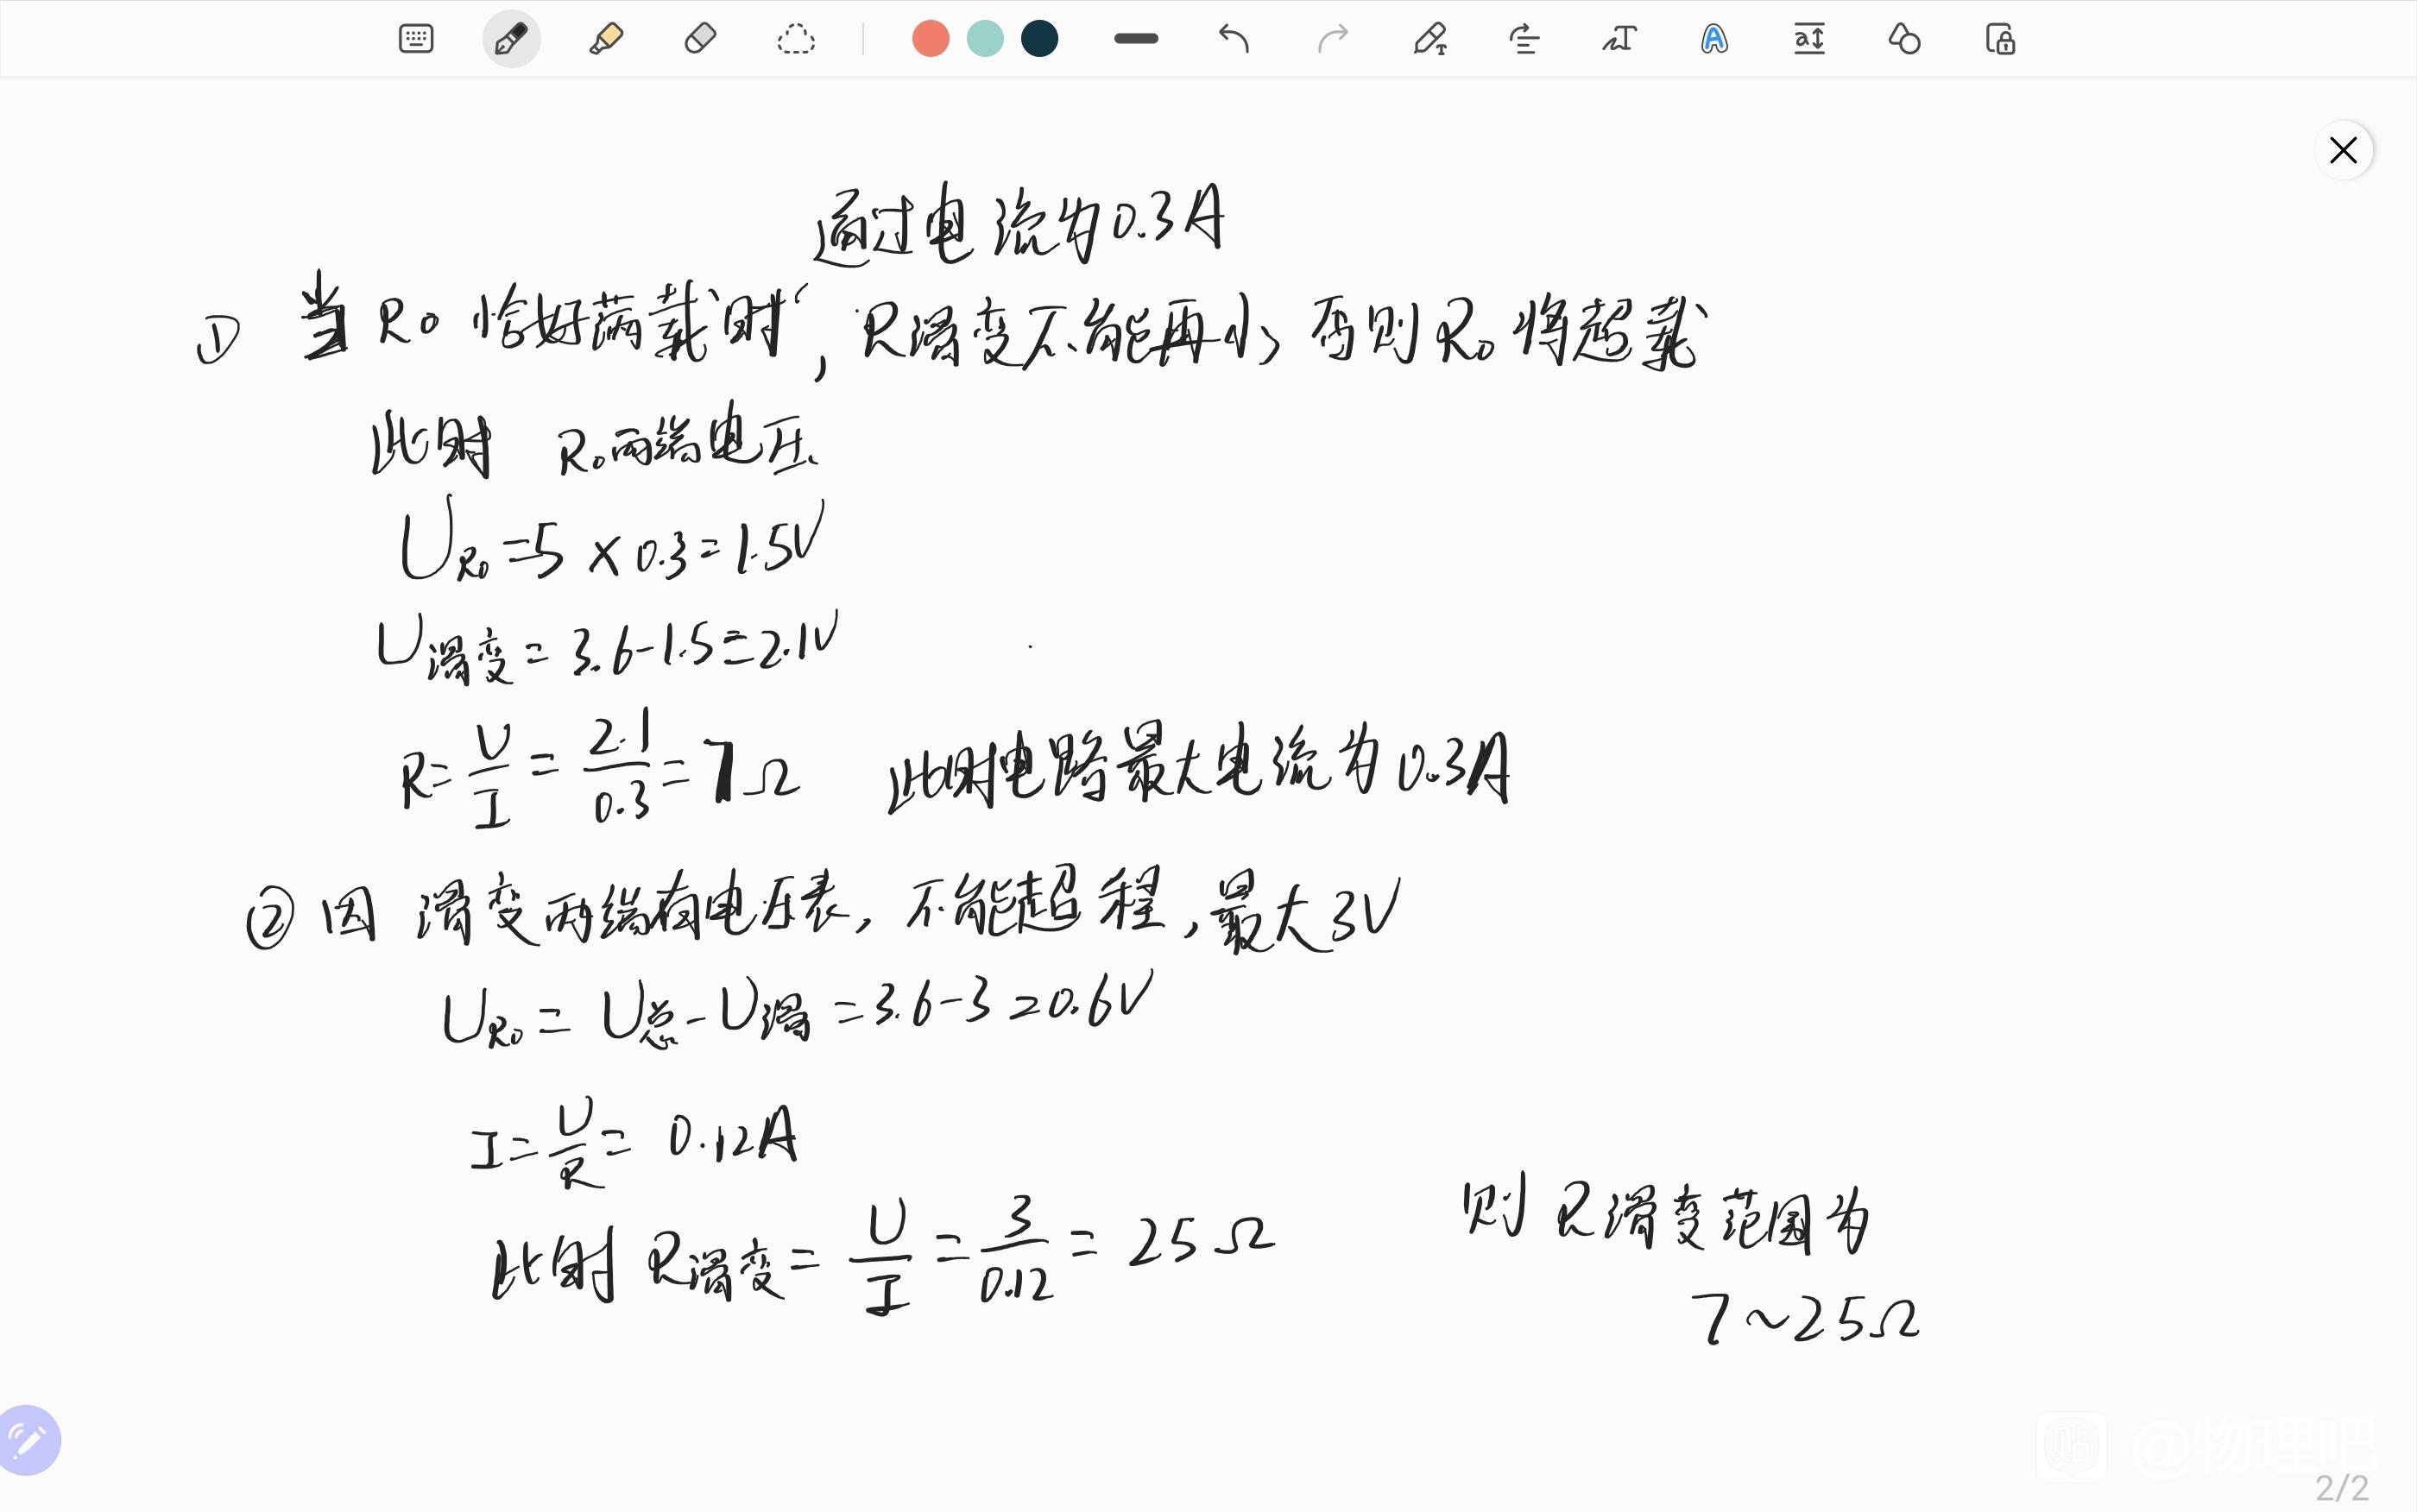 通过电流为0.3A
① 当R₀恰好满载时,R滑变不能再小,否则R₀将超载
此时 R₀两端电压
U_R₀=5×0.3=1.5V
U滑变=3.6-1.5=2.1V
R=U/I=2.1/0.3=7Ω 此时电路最大电流为0.3A
② 因滑变两端有电压表,不能超程,最大3V
U_R₀=U总-U滑=3.6-3=0.6V
I=U/R=0.12A
此时R滑变=U/I=3/0.12=25Ω
则R滑变范围为
7~25Ω
贴
@物理吧
2/2